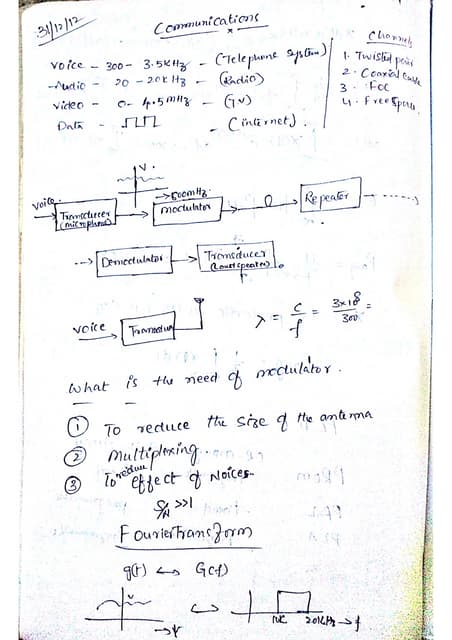 31/12/12
Communications
Voice - 300 - 3.5KHz - (Telephone System)
-Audio - 20 - 20KHz - (Radio)
Video - 0 - 4.5MHz - (TV)
Data - - (internet).
Channels
1. Twisted pair
2. Coaxial cable
3. FOC
4. Free Space
V.
voice
Transducer
(microphone)
→500mHz
modulator
Repeater
Demodulator
Transducer
(Loud speaker)
voice
λ = c/f = 3x10^8/300 =
What is the need of modulator.
① To reduce the size of the antenna
② Multiplexing.
③ To reduce effect of Noices
S/N >>1
Fourier Transform
g(t) ↔ G(f)
20KHz → f